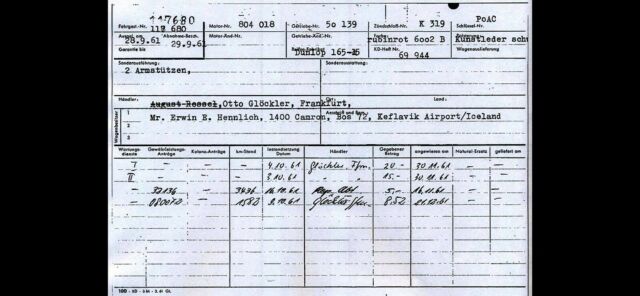 117680
Fahrgest.-Nr. 112 680 Motor-Nr. 804 018 Getriebe-Nr. 5o 139 Zündschloß-Nr. K 319 Schlüssel-Nr. PoAC
Ausgel. am 28.9.61 Abnahme-Besch. 29.9.61 Motor-Änd-Nr. Getriebe-Änd-Nr. rubinrot 6oo2 B Kunstleder schw
Garantie bis Dunlop 165-15 KD-Heft Nr. 69 944 Wagenausstattung
Sonderausführung: Sonderausstattung:
2 Armstützen,
Händler: Ort: Land:
August Ressel, Otto Glöckler, Frankfurt,
Wagenbesitzer 1 Mr. Erwin E. Hennlich, 1400 Camron, Bos 72, Keflavik Airport/Iceland
2
3
Wartungs-dienste Gewährleistungs-Anträge Kulanz-Anträge km-Stand Instandsetzung Datum Händler Gegebener Betrag angewiesen am Natural-Ersatz geliefert am
I - - - 4.10.61 Glöckler, Ffm. 20.- 30.11.61 - -
II - - - 3.10.61 " " 15.- 30.11.61 - -
- - 3436 16.10.61 5.- 16.11.61 - -
- 08007D - 1582 9.10.61 Glöckler 8.52 - -
100 - KD - 3 M - 3. 61 GL